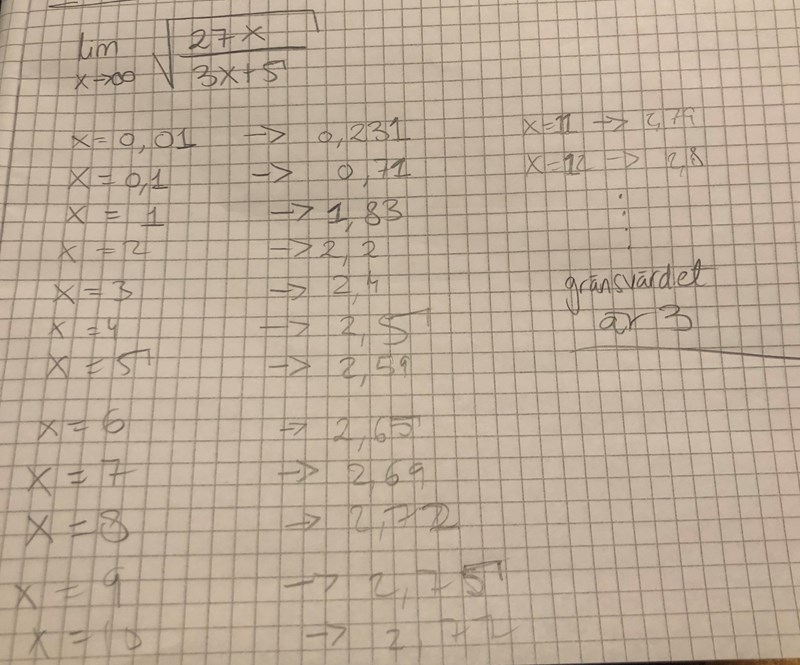 lim x→∞ √(27x / 3x+5)
x = 0,01 → 0,231
x = 0,1 → 0,71
x = 1 → 1,83
x = 2 → 2,2
x = 3 → 2,4
x = 4 → 2,5
x = 5 → 2,59
x = 6 → 2,65
x = 7 → 2,69
x = 8 → 2,72
x = 9 → 2,75
x = 10 → 2,77
x = 11 → 2,79
x = 12 → 2,8
gränsvärdet
är 3